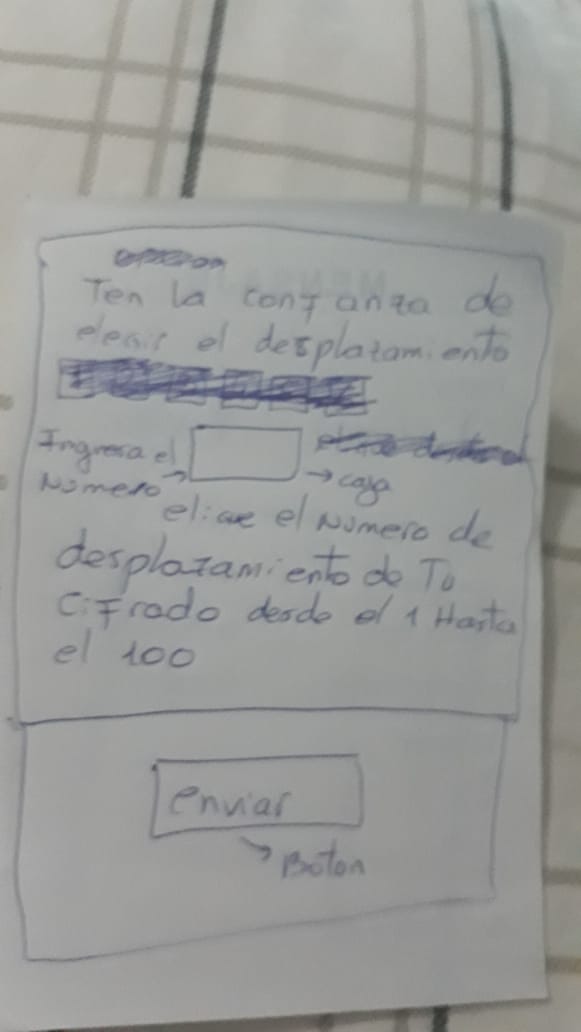 Ten la confianza de
elegir el desplazamiento
Ingresa el
Numero
→ caja
elige el Numero de
desplazamiento de Tu
Cifrado desde el 1 Hasta
el 100
enviar
Boton